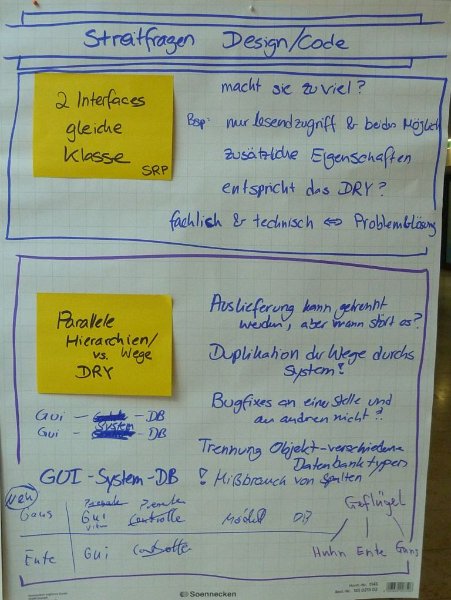 Streitfragen Design/Code
2 Interfaces
gleiche
Klasse
SRP
macht sie zu viel?
Bsp: nur lesendzugriff & beides Möglich
zusätzliche Eigenschaften
entspricht das DRY?
fachlich & technisch ⇔ Problem&lösung
Parallele
Hierarchien/
vs. Wege
DRY
Auslieferung kann getrennt
werden, aber wann stört es?
Duplikation der Wege durchs
System!
Bugfixes an einer Stelle und
an andren nicht?!
Gui - - DB
Gui - System - DB
Trennung Objekt-verschiedene
Datenbanktypen
GUI-System-DB
! Mißbrauch von Spalten
Neu
Gans
Gui
View
Controlle
Model
DB
Geflügel
Huhn Ente Gans
Ente
Gui
Controlle
Soennecken